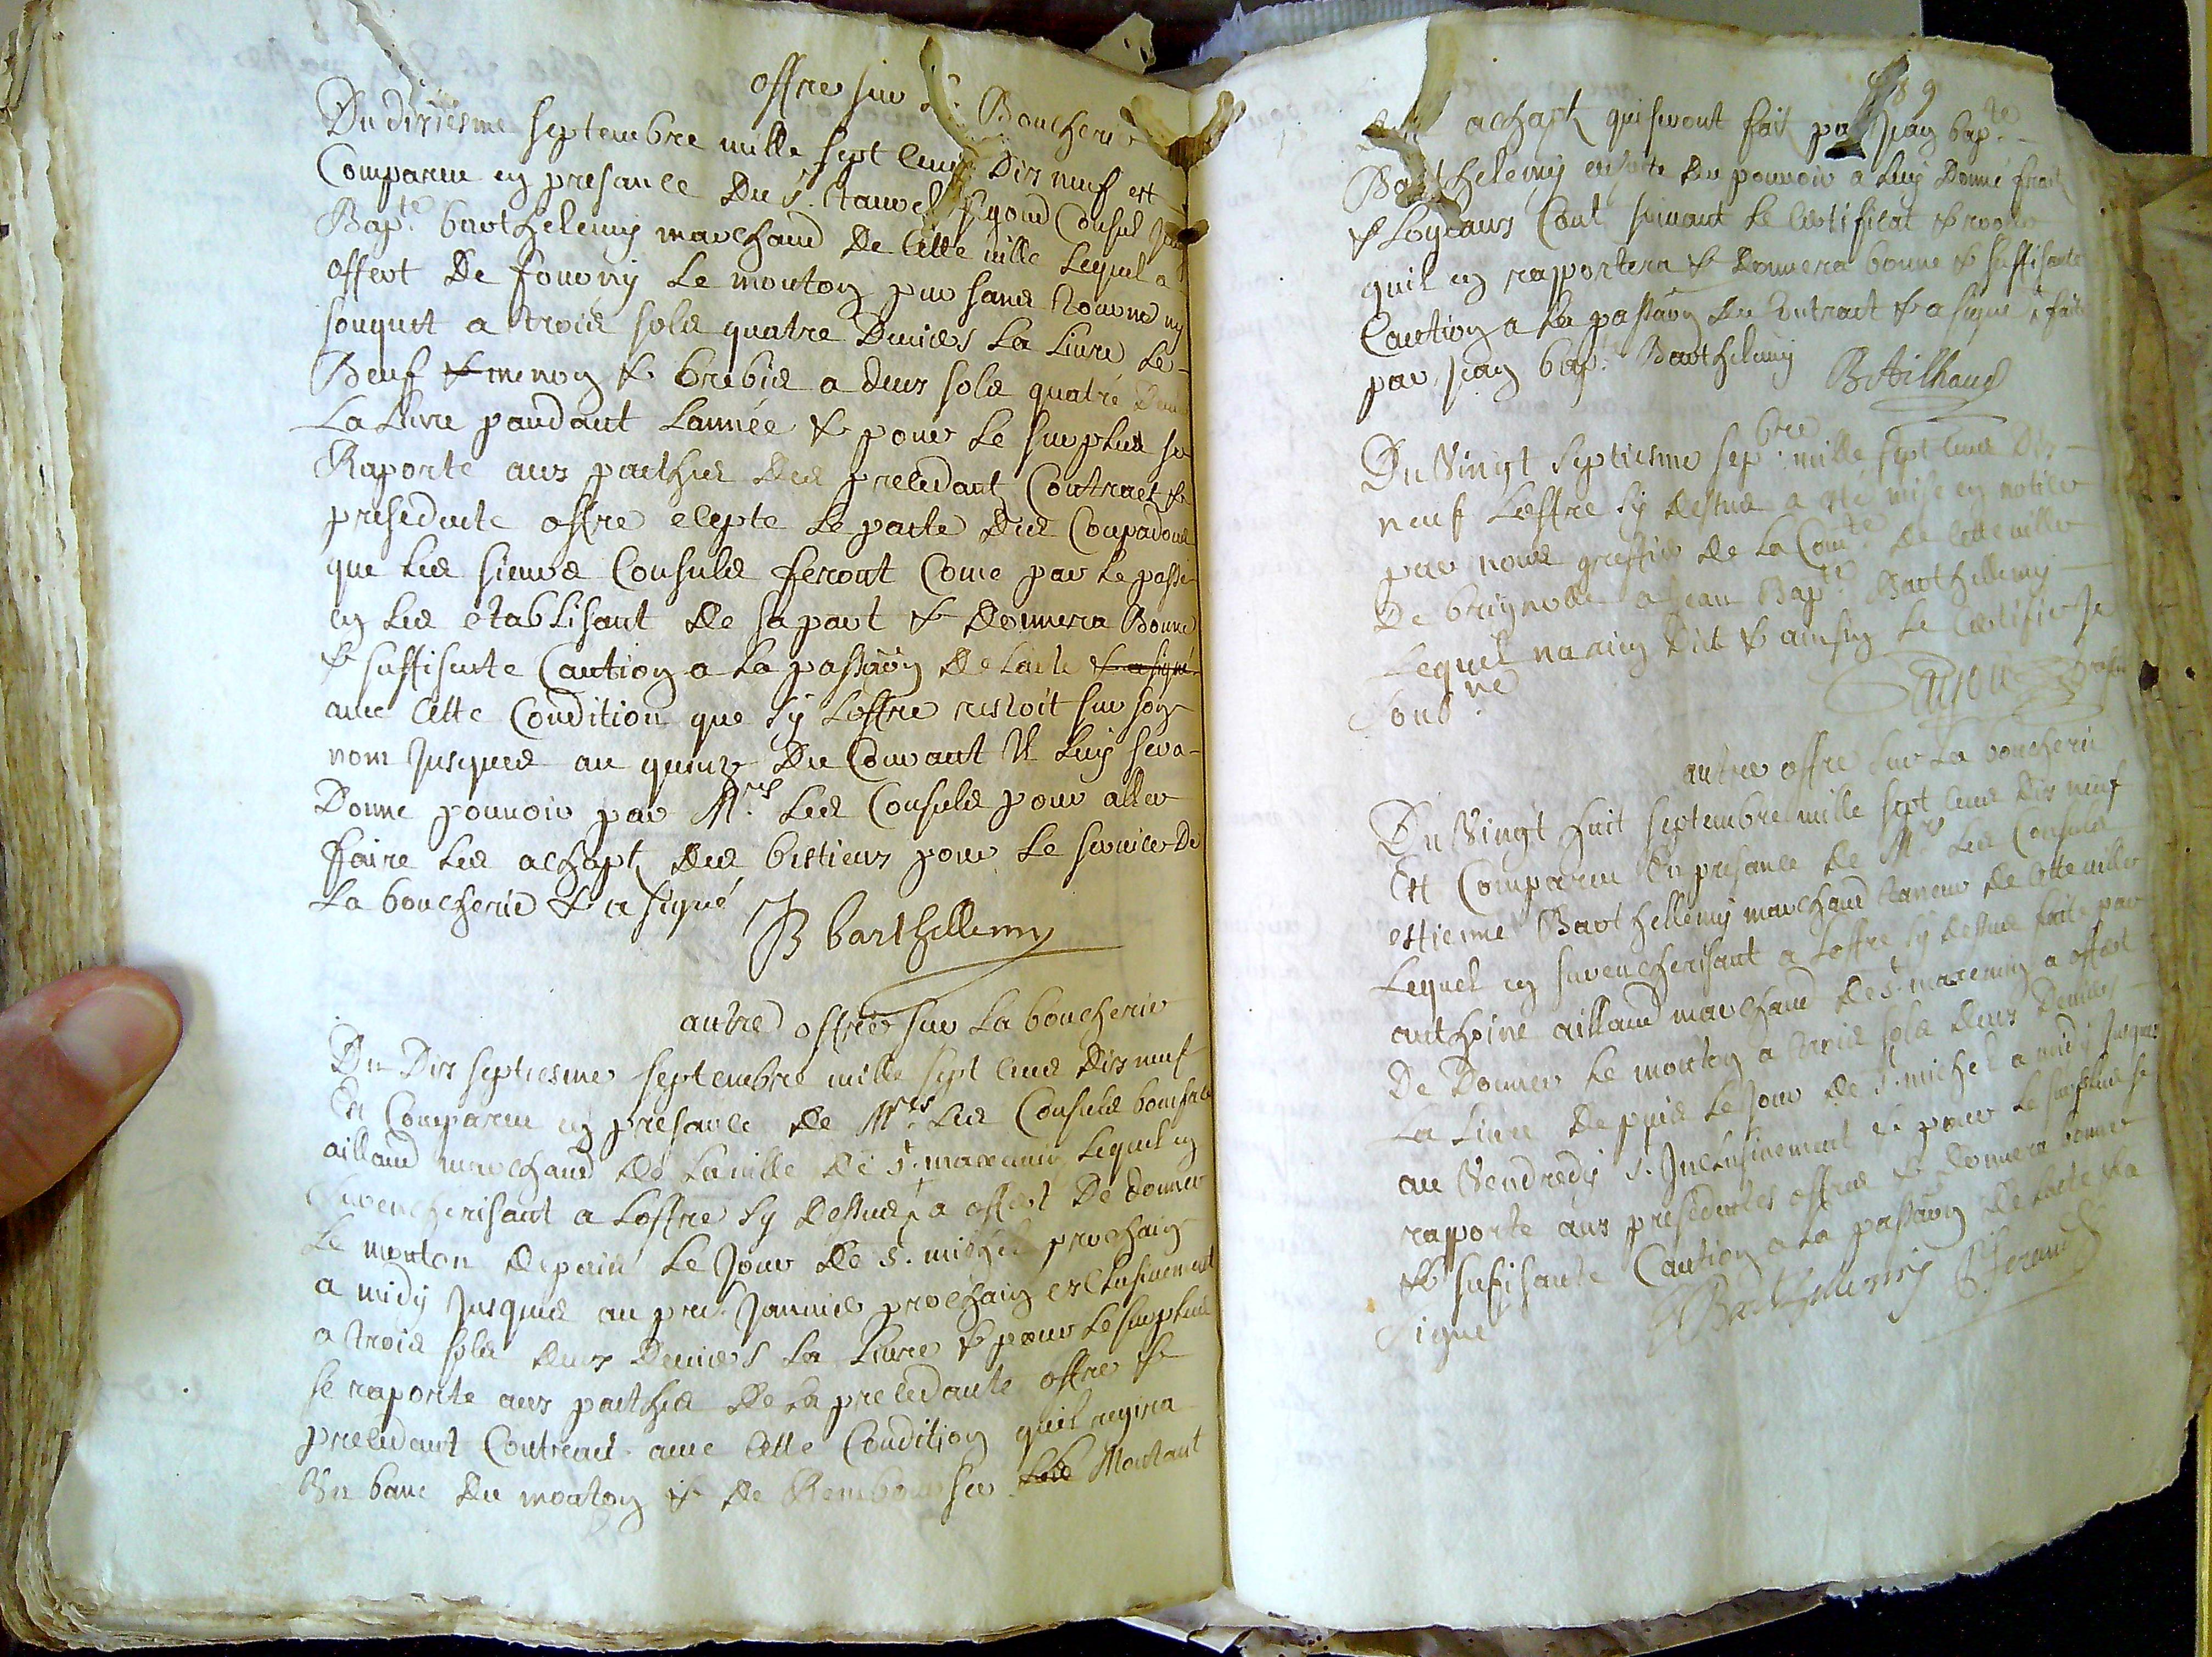 offre sur la Boucherie
Du dixiesme septembre mille sept cens dix neuf est
Compareu en presance du s. segond Consul Jean
Bap.te barthelemy marchand de cette ville Lequel a
offert de fourny le mouton pur sans ny
souquet a trois sols quatre deniers La Livre Le
Beuf & menon & brebis a deux sols quatre deniers
La Livre pandant Lannée & pour Le surplus se
Raporte aux pacthes des precedant Contract &
presedante offre exepte Le pacte des Coupadous
que Les sieurs Consuls feront Come par Le passé
en Les etablisant de sa part & donnera Bonne
& suffisante Caution a La passaõn de Lacte & a signé
avec Cette Condition que sy Loffre restoit sur son
nom Jusques au quinze du Courant Il Luy sera
Donne pouvoir par M.rs Les Consuls pour aller
ffaire Les achapt des bestieux pour Le service de
La boucherie & a signé
JB barthellemy
autre offre sur La boucherie
Du Dix septiesme septembre mille sept cens dix neuf
Est Comparu en presance de M.rs Les Consuls boniface
aillaud marchand de La ville de s.t maxemin Lequel en
surencherisant a Loffre sy dessus a offert De donner
Le mouton depuis Le Jour de s.t michel prochain
a midy Jusques au pre.r Janvier prochain exclusivement
a trois sols deux deniers La Livre & pour Le surplus
se raporte aux pacthes de La precedante offre &
precedant Contract avec Cette Condition quil regira
Un banc du mouton & de Rembourser Les Montant
89
des achapt qui seront fait par Jean bap.te
Barthelemy ensuite du pouvoir a Luy Donné frait
& Loyeaux Cout suivant Le Certificat & rooles
quil en rapportera & Donnera bonne & suffisante
Caution a La passaõn du Contract & a signé + faite
par Jean bap.te Barthelemy
B Ailhaud
Du Vingt septiesme sep.bre mille sept cens Dix
neuf Loffre sy dessus a esté mise en notice
par nous greffier de La Com.té de Cette ville
De brignolle a Jean Bap.te Barthellemy
Lequel na rien Dict & ainsin Le Certifie Je
sous.né
autre offre sur La boucherie
Du Vingt huit septembre mille sept cens Dix neuf
Est Comparu En presance de M.rs Les Consuls
estienne Barthellemy marchand taneur de Cette ville
Lequel en surencherisant a Loffre sy dessus faite par
anthoine aillaud marchand de s.t maxemin a offert
De Donner Le mouton a trois sols deux Deniers
La Livre Deppuis Le Jour de s.t michel a midy Jusques
au Vendredy s. Inclusivement & pour Le surplus se
rapporte aux presedentes offres & donnera bonne
& sufisante Caution a La passaõn de Lacte & a
signé